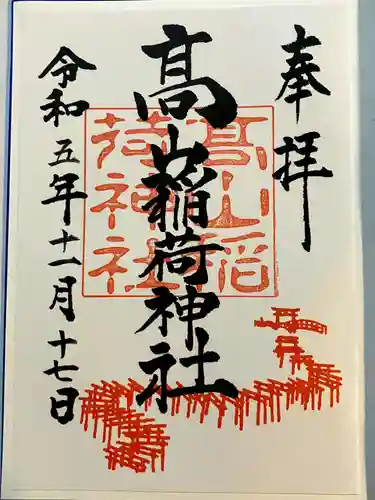 奉拝
高山稲荷神社
高山稲
荷神社
令和五年十一月十七日